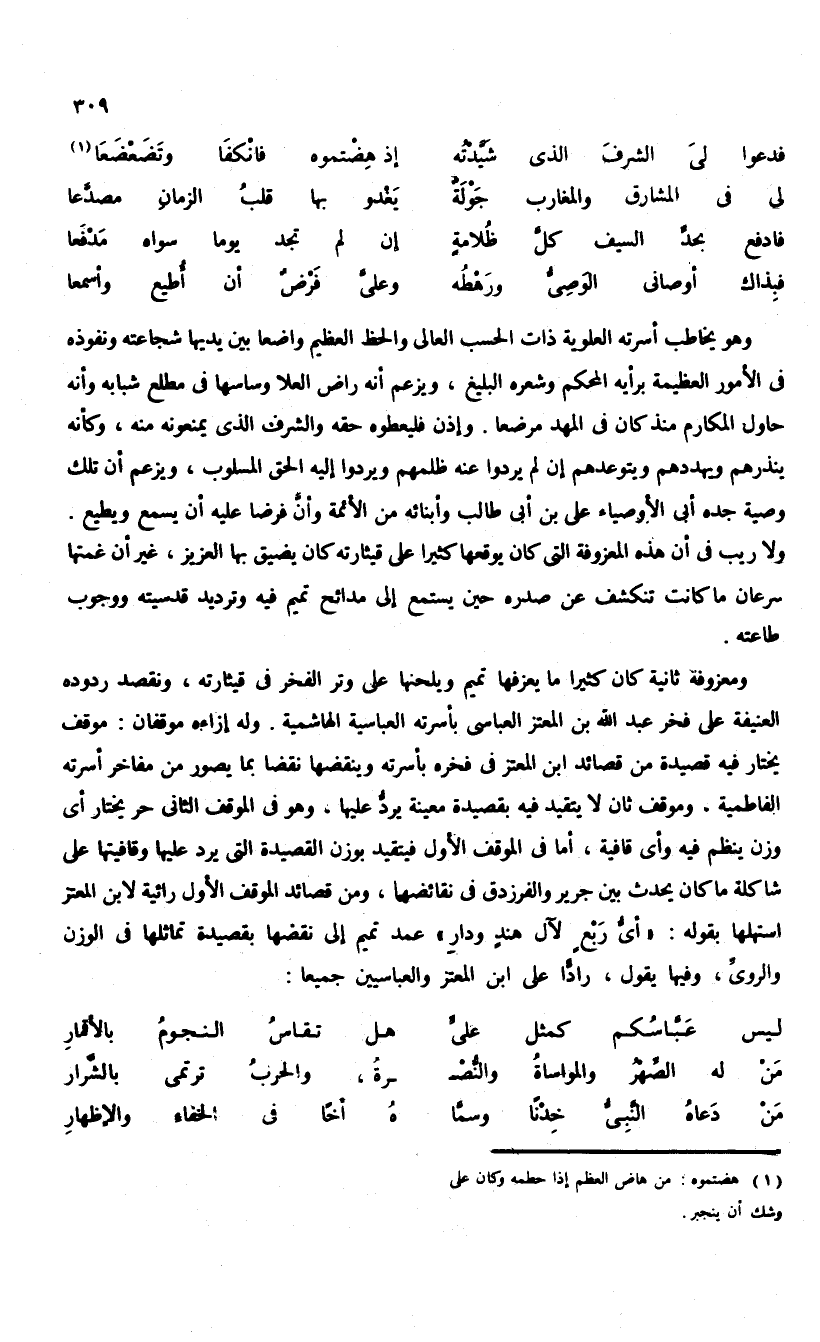 ٣٠٩
فدعوا لىَ الشرفَ الذى شَيَّدْتُه إذ هِضْتموه فانْكفَا وتَضَعْضَعَا(١)
لى فى المشارق والمغارب جَوْلَةٌ يَغْدو بها قلبُ الزمانِ مصدَّعا
فادفع بحدِّ السيف كلَّ ظُلامةٍ إن لم تجد يوما سواه مَدْفَعا
فبِذاك أوصانى الوَصِىُّ ورَهْطُه وعلىَّ فَرْضٌ أن أُطيع وأسمعا
وهو يخاطب أسرته العلوية ذات الحسب العالى والحظ العظيم واضعا بين يديها شجاعته ونفوذه
فى الأمور العظيمة برأيه المحكم وشعره البليغ ، ويزعم أنه راض العلا وساسها فى مطلع شبابه وأنه
حاول المكارم منذ كان فى المهد مرضعا . وإذن فليعطوه حقه والشرف الذى يمنعونه منه ، وكأنه
ينذرهم ويهددهم ويتوعدهم إن لم يردوا عنه ظلمهم ويردوا إليه الحق المسلوب ، ويزعم أن تلك
وصية جده أبى الأوصياء على بن أبى طالب وأبنائه من الأئمة وأنَّ فرضا عليه أن يسمع ويطيع .
ولا ريب فى أن هذه المعزوفة التى كان يوقعها كثيرا على قيثارته كان يضيق بها العزيز ، غير أن غمتها
سرعان ما كانت تنكشف عن صدره حين يستمع إلى مدائح تميم فيه وترديد قدسيته ووجوب
طاعته .
ومعزوفة ثانية كان كثيرا ما يعزفها تميم ويلحنها على وتر الفخر فى قيثارته ، ونقصد ردوده
العنيفة على فخر عبد الله بن المعتز العباسى بأسرته العباسية الهاشمية . وله إزاءه موقفان : موقف
يختار فيه قصيدة من قصائد ابن المعتز فى فخره بأسرته وينقضها نقضا بما يصور من مفاخر أسرته
الفاطمية . وموقف ثان لا يتقيد فيه بقصيدة معينة يردُّ عليها ، وهو فى الموقف الثانى حر يختار أى
وزن ينظم فيه وأى قافية ، أما فى الموقف الأول فيتقيد بوزن القصيدة التى يرد عليها وقافيتها على
شاكلة ما كان يحدث بين جرير والفرزدق فى نقائضها ، ومن قصائد الموقف الأول رائية لابن المعتز
استهلها بقوله : «أىُّ رَبْعٍ لآل هندٍ ودارِ» عمد تميم إلى نقضها بقصيدة تماثلها فى الوزن
والروىِّ ، وفيها يقول ، رادًّا على ابن المعتز والعباسيين جميعا :
ليس عَبَّاسُكم كمثل علىٍّ هل تقاسُ النجومُ بالأقمارِ
مَنْ له الصِّهْرُ والمواساةُ والنُّصْـ ـرةُ ، والحربُ ترتمى بالشَّرار
مَنْ دَعاهُ النَّبِىُّ خِدْنًا وسمَّا هُ أخًا فى الخفاء والإظهارِ
(١) هضتموه : من هاض العظم إذا حطمه وكان على
وشك أن ينجبر .